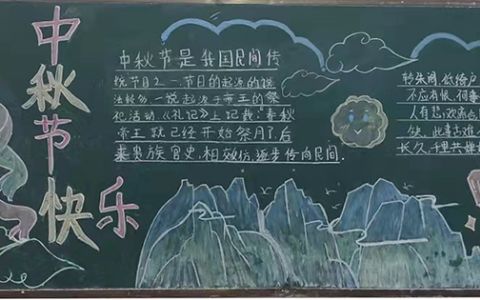 中秋节快乐
中秋节是我国民间传
统节日之一.节日的起源的说
法较多.一说起源于帝王的祭
祀活动.《礼记》上记载:“春秋
帝王就已经开始祭月了.后
来贵族官吏.相效仿.逐步传向民间.
转朱阁.低绮户
不应有恨.何事
人有悲欢离合
缺.此事古难
长久.千里共婵